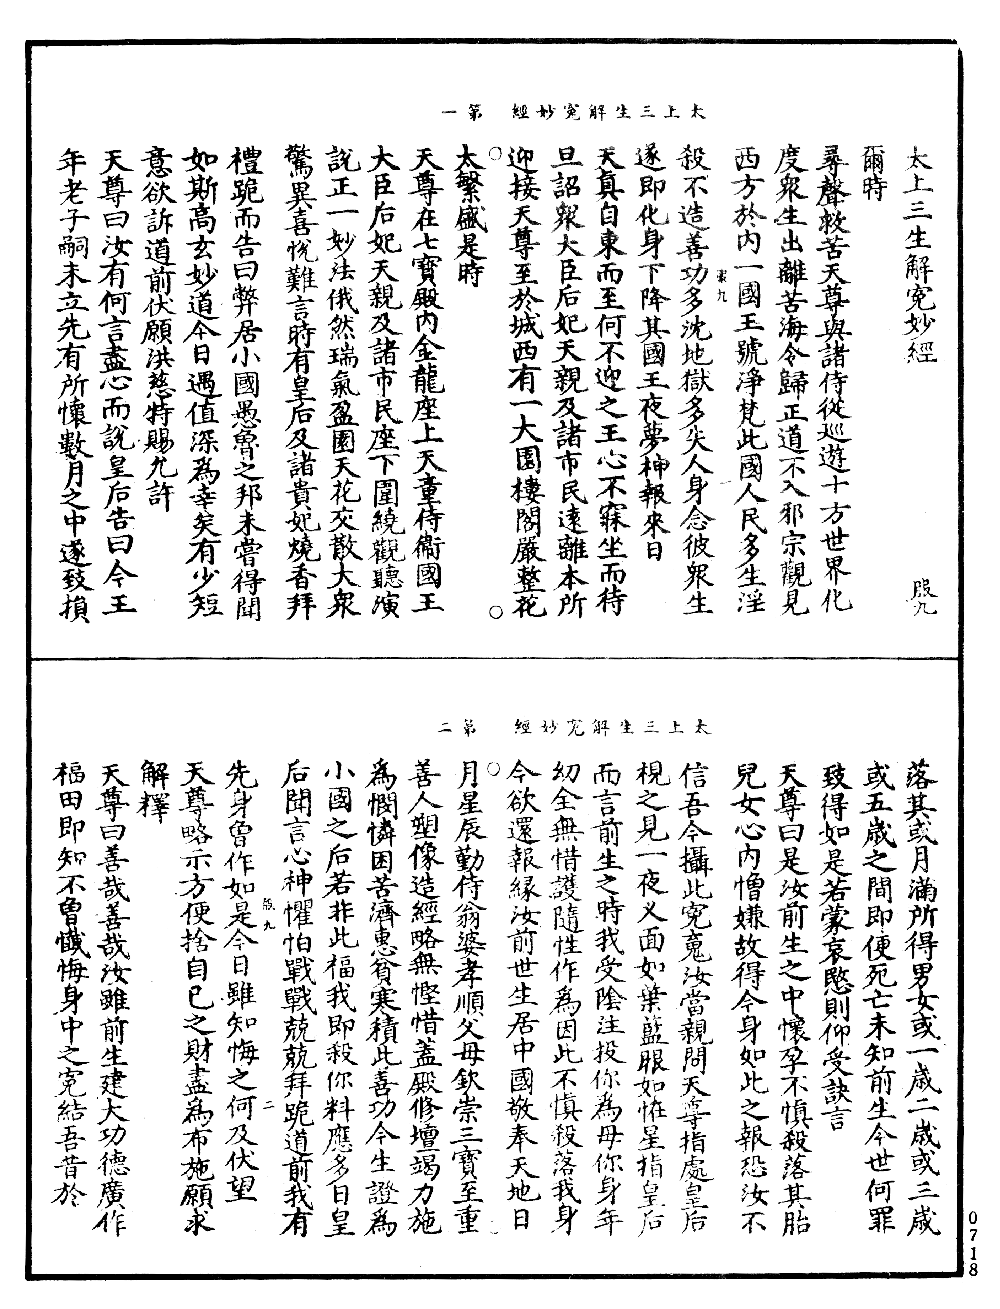 太上三生解冤妙經　第一
太上三生解冤妙經　服九
爾時
尋聲救苦天尊與諸侍從巡遊十方世界化
度衆生出離苦海令歸正道不入邪宗觀見
西方於內一國王號淨梵此國人民多生淫
殺不造善功多沈地獄多失人身念彼衆生
服九
遂即化身下降其國王夜夢神報來日
天真自東而至何不迎之王心不寐坐而待
旦詔衆大臣后妃天親及諸市民遠離本所
迎接天尊至於城西有一大園樓閣嚴整花
太繁盛是時
天尊在七寶殿內金龍座上天童侍衞國王
大臣后妃天親及諸市民座下圍繞觀聽演
說正一妙法俄然瑞氣盈園天花交散大衆
驚異喜悅難言時有皇后及諸貴妃燒香拜
禮跪而告曰弊居小國愚魯之邦未嘗得聞
如斯高玄妙道今日遇值深爲幸矣有少短
意欲訴道前伏願洪慈特賜允許
天尊曰汝有何言盡心而說皇后告曰今王
年老子嗣未立先有所懷數月之中遂致損
太上三生解冤妙經　第二
落其或月滿所得男女或一歲二歲或三歲
或五歲之間即便死亡未知前生今世何罪
致得如是若蒙哀愍則仰受訣言
天尊曰是汝前生之中懷孕不慎殺落其胎
兒女心內憎嫌故得今身如此之報恐汝不
信吾今攝此冤䰟汝當親問天尊指處皇后
視之見一夜叉面如葉藍眼如恠星指皇后
而言前生之時我受陰注投你為母你身年
幼全無惜護隨性作為因此不慎殺落我身
今欲還報緣汝前世生居中國敬奉天地日
月星辰勤侍翁婆孝順父母欽崇三寶至重
善人塑像造經略無慳惜蓋殿修壇竭力施
爲憫憐困苦濟惠貧寒積此善功今生證爲
小國之后若非此福我即殺你料應多日皇
后聞言心神懼怕戰戰兢兢拜跪道前我有
先身曾作如是今日雖知悔之何及伏望
服九　二
天尊略示方便捨自己之財盡為布施願求
解釋
天尊曰善哉善哉汝雖前生建大功德廣作
福田即知不曾懺悔身中之冤結吾昔於
0718